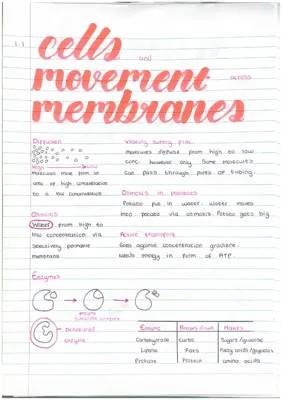 1.1
cells and
movement across
membranes
Diffusion
High Low
Molecules move from an
area of high concentration
to a low concentration
Osmosis
Water from high to
low concentration via
selectively
membrane
Visking tubing prac.
Molecules diffuse from high to low
conc. however only some molecules
can pass through pores of tubing.
Osmosis in potatoes
Potato put in water. water moves
into potato via osmosis. Potato gets big
Active transport
Goes against concentration gradient
needs energy in form of ATP.
Enzymes
enzyme
substrate complex
Denatured
enzyme
Enzyme Breaks down Makes
Carbohydrase Carbs Sugars/glucose
Lipase Fats Fatty acids/glycerol
Protease Protein amino acids